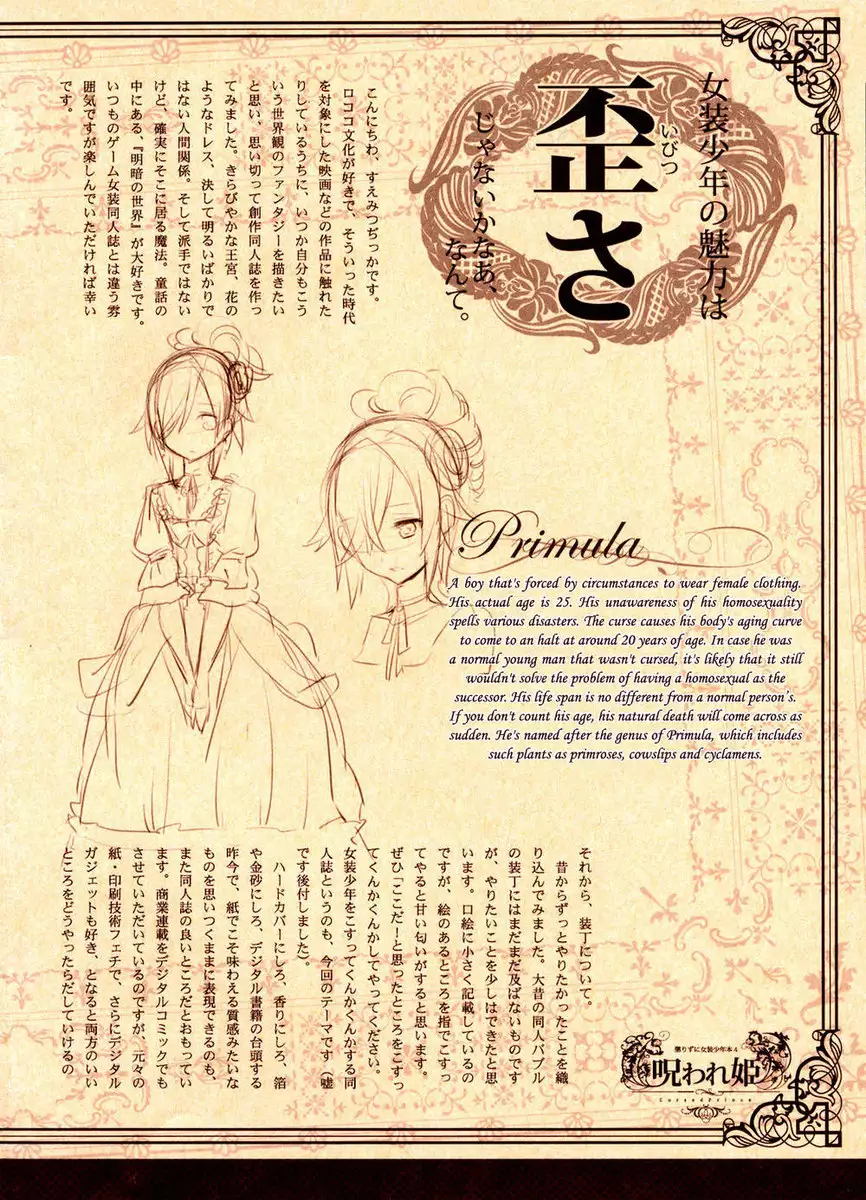 女装少年の魅力は
いびつ
歪さ
じゃないかなあ、
なんて。
こんにちわ、すえみつぢっかです。
ロココ文化が好きで、そういった時代
を対象にした映画などの作品に触れた
りしているうちに、いつか自分もこう
いう世界観のファンタジーを描きたい
と思い、思い切って創作同人誌を作っ
てみました。きらびやかな王宮、花の
ようなドレス、決して明るいばかりで
はない人間関係。そして派手ではない
けど、確実にそこに居る魔法。童話の
中にある、『明暗の世界』が大好きです。
いつものゲーム女装同人誌とは違う雰
囲気ですが楽しんでいただければ幸い
です。
Primula
A boy that's forced by circumstances to wear female clothing.
His actual age is 25. His unawareness of his homosexuality
spells various disasters. The curse causes his body's aging curve
to come to an halt at around 20 years of age. In case he was
a normal young man that wasn't cursed, it's likely that it still
wouldn't solve the problem of having a homosexual as the
successor. His life span is no different from a normal person's.
If you don't count his age, his natural death will come across as
sudden. He's named after the genus of Primula, which includes
such plants as primroses, cowslips and cyclamens.
それから、装丁について。
昔からずっとやりたかったことを織
り込んでみました。大昔の同人バブル
の装丁にはまだまだ及ばないものです
が、やりたいことを少しはできたと思
います。口絵に小さく記載しているの
ですが、絵のあるところを指でこすっ
てやると甘い匂いがすると思います。
ぜひ「ここだ！と思ったところをこすっ
てくんかくんかしてやってください。
女装少年をこすってくんかくんかする同
人誌というのも、今回のテーマです（嘘
です後付しました）。
ハードカバーにしろ、香りにしろ、箔
や金砂にしろ、デジタル書籍の台頭する
昨今で、紙でこそ味わえる質感みたいな
ものを思いつくままに表現できるのも、
また同人誌の良いところだとおもってい
ます。商業連載をデジタルコミックでも
させていただいているのですが、元々の
紙・印刷技術フェチで、さらにデジタル
ガジェットも好き、となると両方のいい
ところをどうやったらだしていけるの
懲りずに女装少年本4
呪われ姫
CursedPrince